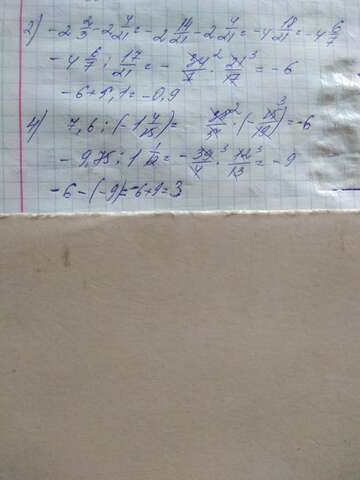 2) -2 2/3 - 2 4/21 = -2 14/21 - 2 4/21 = -4 18/21 = -4 6/7
-4 6/7 : 17/21 = - 34/7 · 21/17 = -6
-6 + 5,1 = -0,9
4) 7,6 : (-1 4/15) = 38/5 · (- 15/19) = -6
-9,75 : 1 1/12 = - 39/4 · 12/13 = -9
-6 - (-9) = -6 + 9 = 3